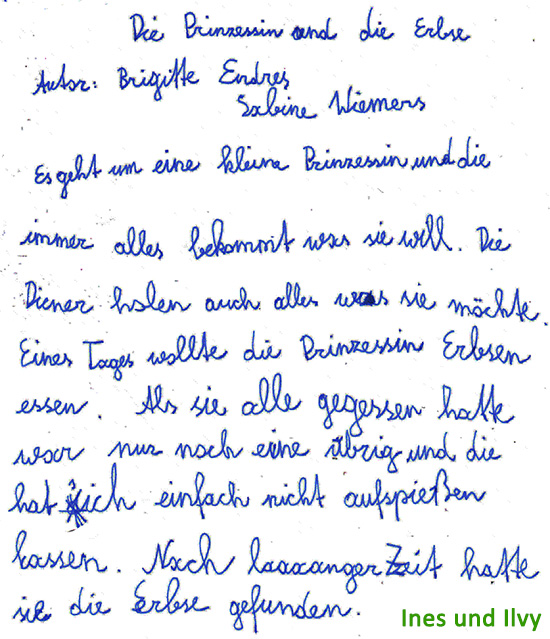 Die Prinzessin und die Erbse
Autor: Brigitte Endres
Sabine Wiemers
Es geht um eine kleine Prinzessin, und die
immer alles bekommt was sie will. Die
Diener holen auch alles was sie möchte.
Eines Tages wollte die Prinzessin Erbsen
essen. Als sie alle gegessen hatte
war nur noch eine übrig und die
hat sich einfach nicht aufspießen
lassen. Nach laaaanger Zeit hatte
sie die Erbse gefunden.
Ines und Ilvy